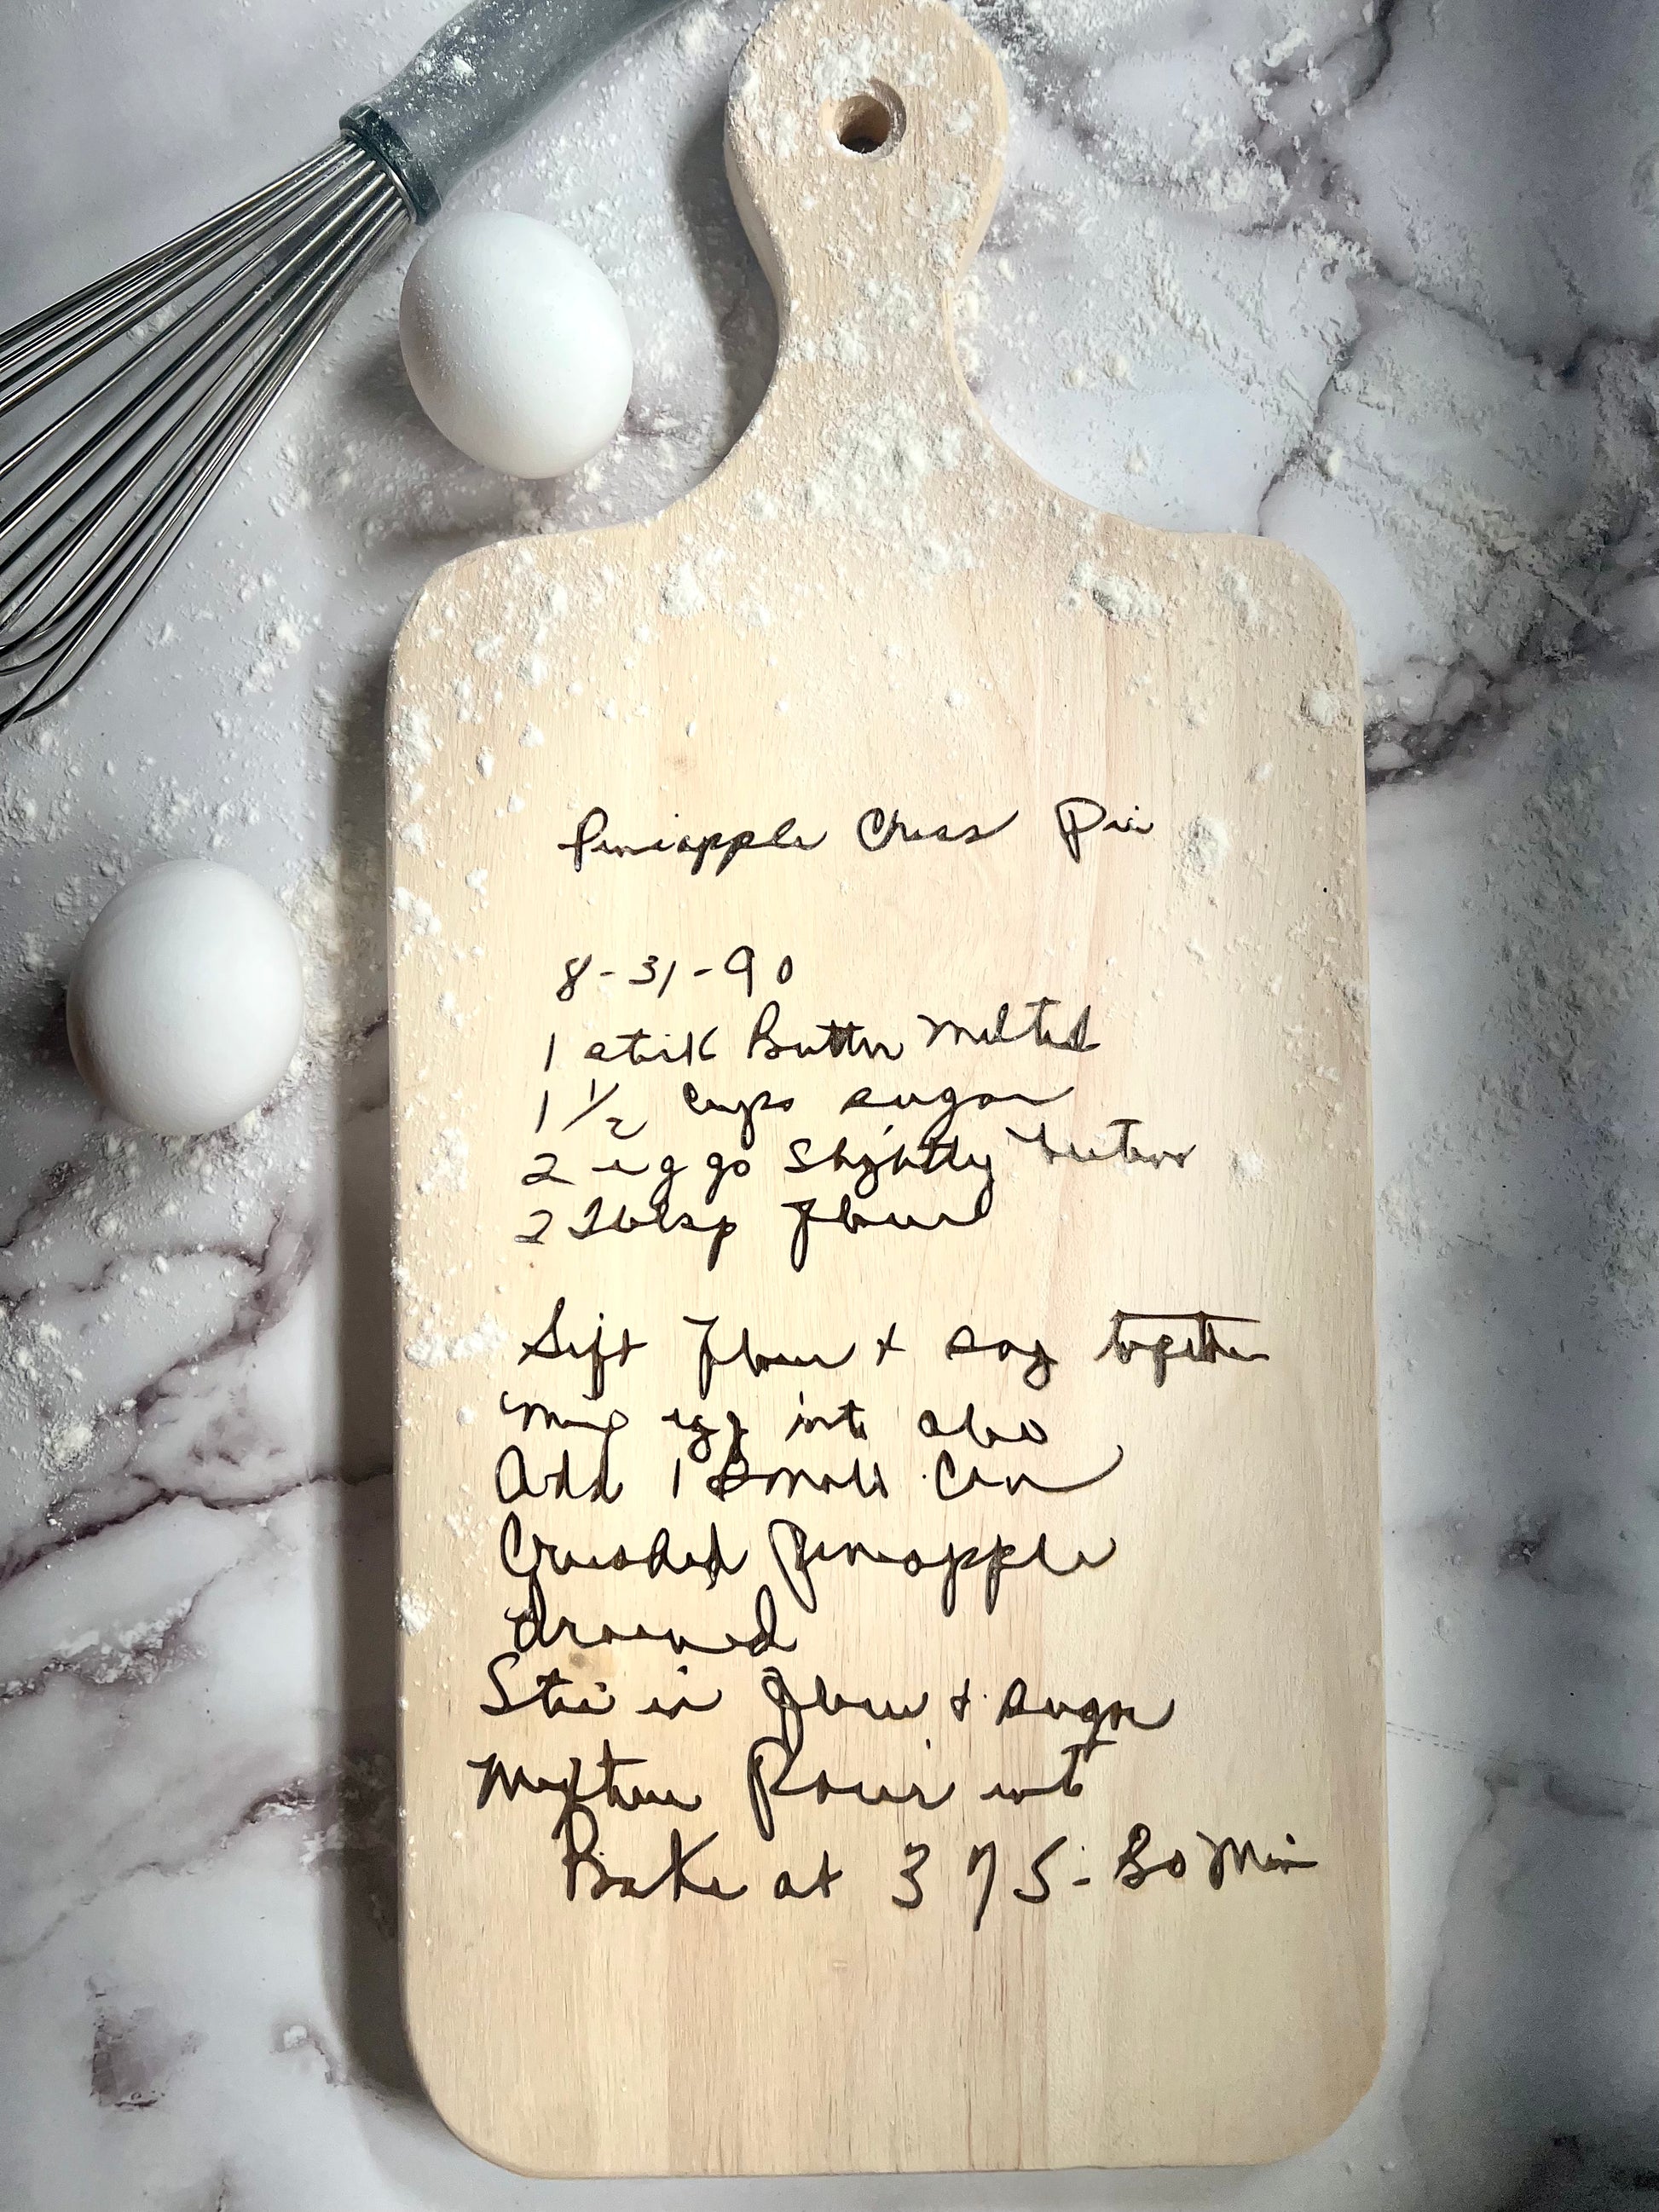 Pineapple Chess Pie
8-31-90
1 stick Butter Melted
1 1/2 Cups sugar
2 eggs Slightly beaten
2 Tblsp Flour
Sift Flour + sug together
Mix egg into
Add 1 Small Can
Crushed Pineapple
drained
Stir in Flour + sugar
Mixture Pour into
Bake at 375 - 30 Min